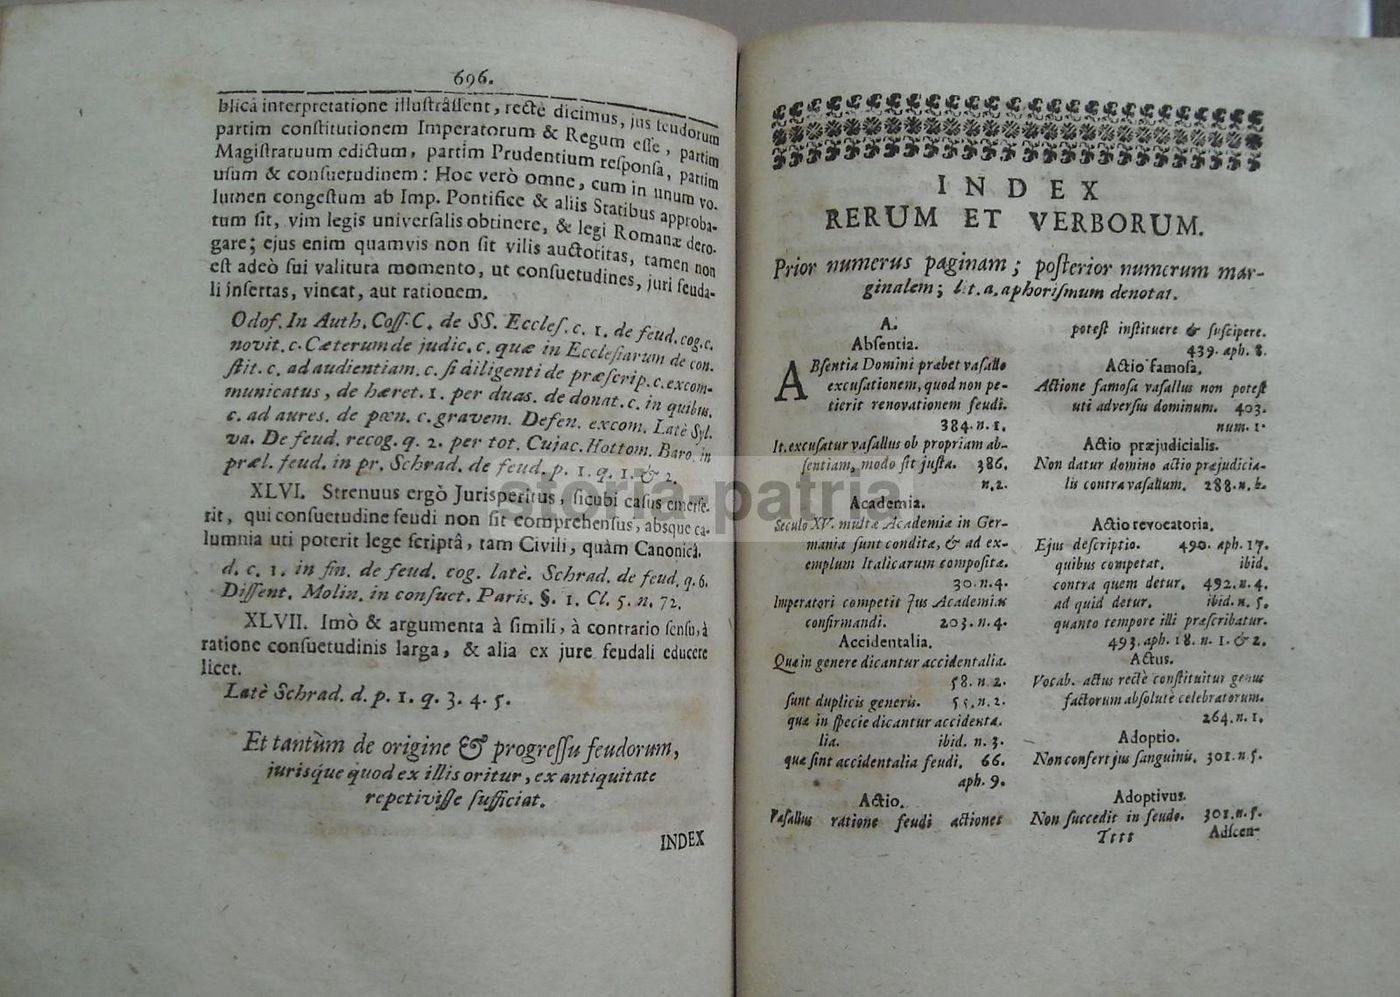 696.
blicâ interpretatione illuſtrâſſent, rectè dicimus, jus feudorum
partim conſtitutionem Imperatorum & Regum eſſe, partim
Magiſtratuum edictum, partim Prudentium reſponſa, partim
uſum & conſuetudinem: Hoc verò omne, cum in unum vo-
lumen congeſtum ab Imp. Pontifice & aliis Statibus approba-
tum ſit, vim legis univerſalis obtinere, & legi Romanæ dero-
gare; ejus enim quamvis non ſit vilis auctoritas, tamen non
eſt adeò ſui valitura momento, ut conſuetudines, juri feuda-
li inſertas, vincat, aut rationem.
Odof. In Auth. Coſſ. C. de SS. Eccleſ. c. 1. de feud. cog. c.
novit. c. Cæterum de judic. c. quæ in Eccleſiarum de con-
ſtit. c. ad audientiam. c. ſi diligenti de præſcrip. c. excom-
municatus, de hæret. 1. per duas. de donat. c. in quibus.
c. ad aures. de pæn. c. gravem. Defen. excom. Latè Syl-
va. De feud. recog. q. 2. per tot. Cujac. Hottom. Baro. in
præl. feud. in pr. Schrad. de feud. p. 1. q. 1. & 2.
XLVI. Strenuus ergò Jurisperitus, ſicubi caſus emerſe-
rit, qui conſuetudine feudi non ſit comprehenſus, absque ca-
lumnia uti poterit lege ſcriptâ, tam Civili, quàm Canonicâ.
d. c. 1. in fin. de feud. cog. latè. Schrad. de feud. q. 6.
Diſſent. Molin. in conſuet. Paris. §. 1. Cl. 5. n. 72.
XLVII. Imò & argumenta à ſimili, à contrario ſenſu, à
ratione conſuetudinis larga, & alia ex jure feudali educere
licet.
Latè Schrad. d. p. 1. q. 3. 4. 5.
Et tantùm de origine & progreſſu feudorum,
jurisque quod ex illis oritur, ex antiquitate
repetiviſſe ſufficiat.
INDEX
INDEX
RERUM ET VERBORUM.
Prior numerus paginam; poſterior numerum mar-
ginalem; lit. a. aphoriſmum denotat.
A.
Abſentia.
ABſentia Domini præbet vaſallo
excuſationem, quod non pe-
tierit renovationem feudi.
384. n. 1.
It. excuſatur vaſallus ob propriam ab-
ſentiam, modo ſit juſta. 386.
n. 2.
Academia.
Seculo XV. multæ Academiæ in Ger-
mania ſunt conditæ, & ad ex-
emplum Italicarum compoſitæ.
30. n. 4.
Imperatori competit Jus Academias
confirmandi. 203. n. 4.
Accidentalia.
Quæ in genere dicantur accidentalia.
58. n. 2.
ſunt duplicis generis. 55. n. 2.
quæ in ſpecie dicantur accidenta-
lia. ibid. n. 3.
quæ ſint accidentalia feudi. 66.
aph. 9.
Actio.
Vaſallus ratione feudi actiones
poteſt inſtituere & ſuſcipere.
439. aph. 8.
Actio famoſa.
Actione famoſa vaſallus non poteſt
uti adverſus dominum. 403.
num. 1.
Actio præjudicialis.
Non datur domino actio præjudicia-
lis contra vaſallum. 288. n. b.
Actio revocatoria.
Ejus deſcriptio. 490. aph. 17.
quibus competat. ibid.
contra quem detur. 492. n. 4.
ad quid detur. ibid. n. 5.
quanto tempore illi præſcribatur.
493. aph. 18. n. 1. & 2.
Actus.
Vocab. actus rectè conſtituitur genus
factorum abſolutè celebratorum.
264. n. 1.
Adoptio.
Non confert jus ſanguinis. 301. n. 5.
Adoptivus.
Non ſuccedit in feudo. 301. n. 5.
Tttt Adſcen-
storia-patria